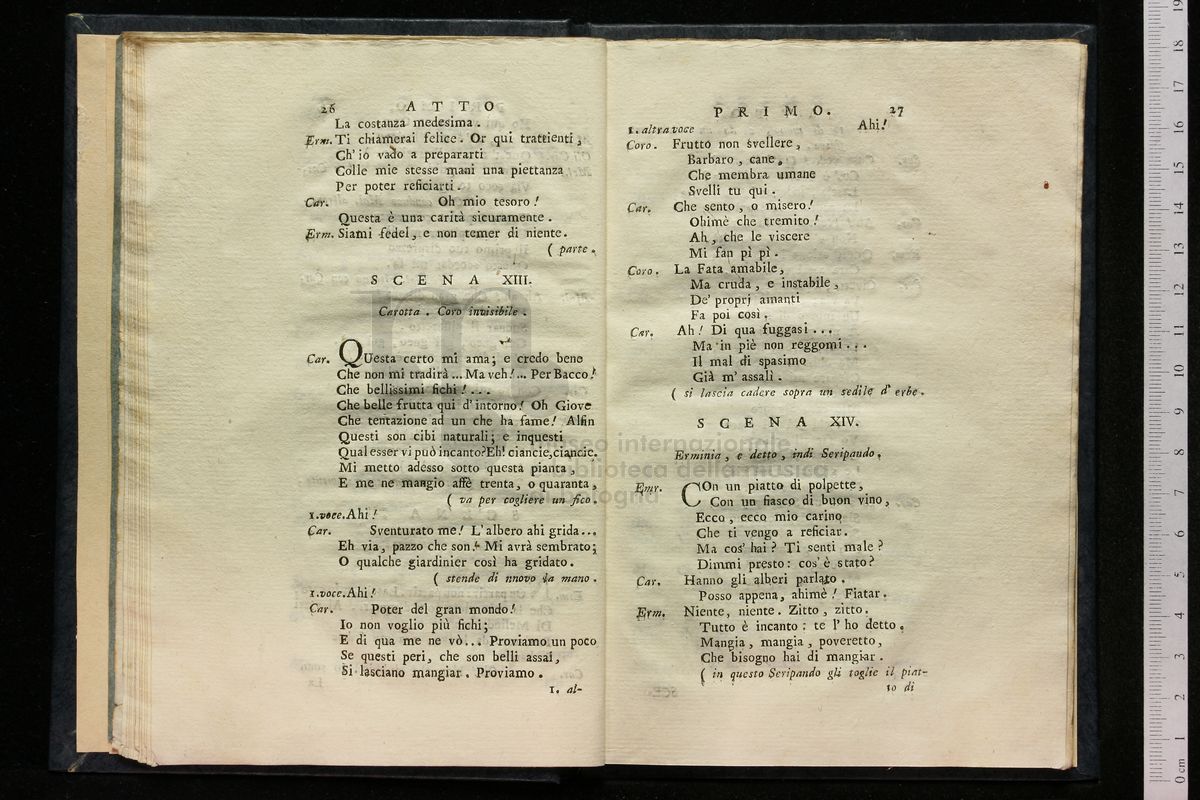 26 ATTO
La costanza medesima.
Erm. Ti chiamerai felice. Or qui trattienti,
Ch' io vado a prepararti
Colle mie stesse mani una piettanza
Per poter reficiarti.
Car. Oh mio tesoro!
Questa è una carità sicuramente.
Erm. Siami fedel, e non temer di niente.
( parte.
SCENA XIII.
Carotta. Coro invisibile.
Car. QUesta certo mi ama; e credo bene
Che non mi tradirà ... Ma veh!... Per Bacco!
Che bellissimi fichi!...
Che belle frutta qui d'intorno! Oh Giove
Che tentazione ad un che ha fame! Alfin
Questi son cibi naturali; e inquesti
Qual esser vi può incanto? Eh! ciancie, ciancie.
Mi metto adesso sotto questa pianta,
E me ne mangio affè trenta, o quaranta,
( va per cogliere un fico.
1. voce. Ahi!
Car. Sventurato me! L'albero ahi grida...
Eh via, pazzo che son! Mi avrà sembrato;
O qualche giardinier così ha gridato.
( stende di nnovo la mano.
1. voce. Ahi!
Car. Poter del gran mondo!
Io non voglio più fichi;
E di qua me ne vò... Proviamo un poco
Se questi peri, che son belli assai,
Si lasciano mangiar. Proviamo.
1. al-
PRIMO. 27
1. altra voce Ahi!
Coro. Frutto non svellere,
Barbaro, cane,
Che membra umane
Svelli tu qui.
Car. Che sento, o misero!
Ohimè che tremito!
Ah, che le viscere
Mi fan pì pì.
Coro. La Fata amabile,
Ma cruda, e instabile,
De' proprj amanti
Fa poi così.
Car. Ah! Di qua fuggasi...
Ma in piè non reggomi...
Il mal di spasimo
Già m' assalì.
( si lascia cadere sopra un sedile d' erbe.
SCENA XIV.
Erminia, e detto, indi Seripando.
Emr. COn un piatto di polpette,
Con un fiasco di buon vino,
Ecco, ecco mio carino
Che ti vengo a reficiar.
Ma cos' hai? Ti senti male?
Dimmi presto: cos' è stato?
Car. Hanno gli alberi parlato.
Posso appena, ahimè! Fiatar.
Erm. Niente, niente. Zitto, zitto.
Tutto è incanto: te l' ho detto.
Mangia, mangia, poveretto,
Che bisogno hai di mangiar.
( in questo Seripando gli toglie il piat-
to di
museo internazionale
biblioteca della musica
bologna
0 cm 1 2 3 4 5 6 7 8 9 10 11 12 13 14 15 16 17 18 19